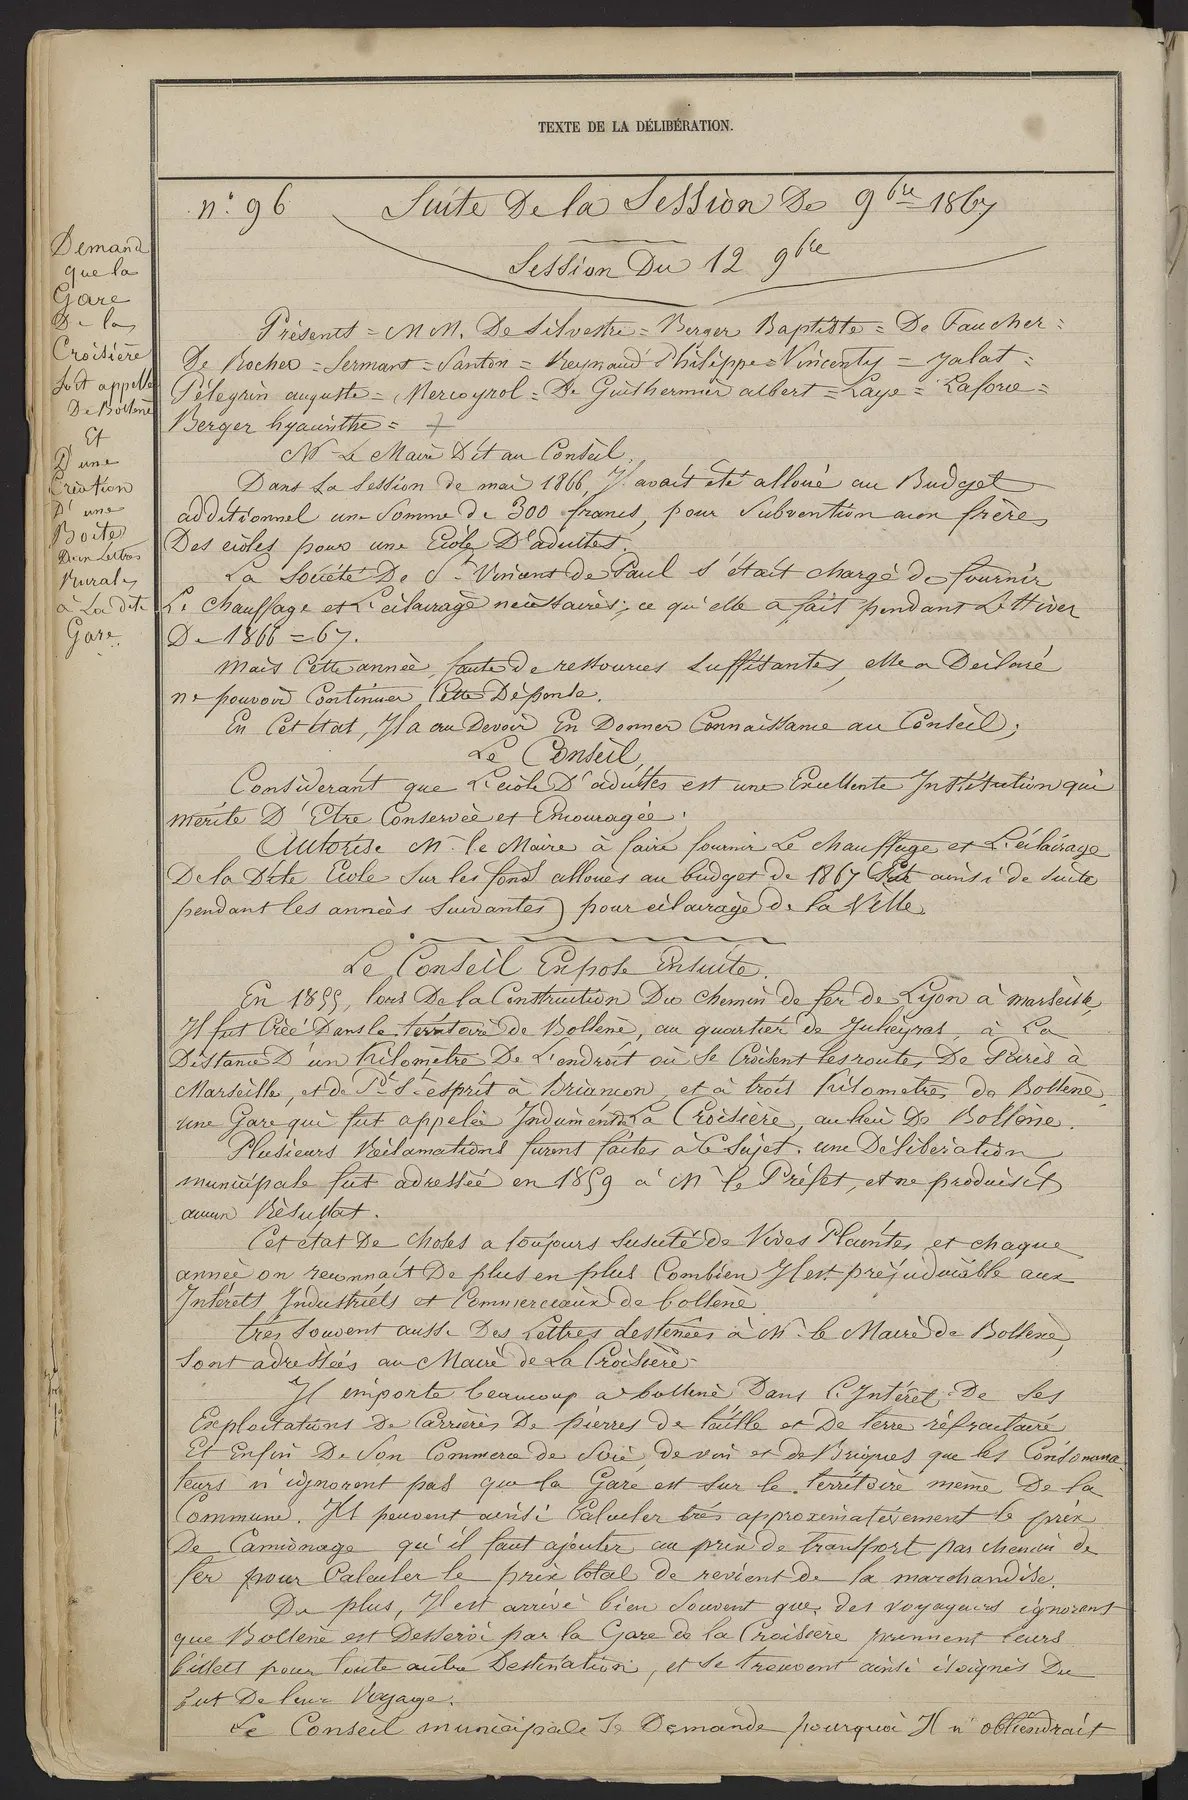 TEXTE DE LA DÉLIBÉRATION.
n° 96 Suite De la Session De 9bre 1867
Session Du 12 9bre
Demand
que la
Gare
De la
Croisière
Soit appellé
De Bollène
Et
D'une
Création
D'une
Boite
Rurale
à La dite
Gare
Présents = MM. De Silvestre = Berger Baptiste = De Faucher =
De Rocher = Sermant = Santon = Reynaud Philippe = Vincenty = Jalat =
Pélegrin auguste = Mercoyrol = De Guilhermier albert = Laye = Laforce =
Berger hyacinthe =
Mr Le Maire Dit au Conseil.
Dans La Session de mai 1866, Il avait été alloué au Budget
additionnel une Somme de 300 francs, pour Subvention aux frères
Des écoles pour une Ecole D'adultes.
La Société De St Vincent de Paul s'était chargé de fournir
Le chauffage et L'éclairage nécessaires; ce qu'elle a fait pendant L'Hiver
De 1866 = 67.
Mais Cette année, faute de ressources Suffisantes, elle a Déclaré
ne pouvoir Continuer Cette Dépense.
En Cet état, Il a cru Devoir En Donner Connaissance au Conseil;
Le Conseil,
Considérant que L'école D'adultes est une Excellente Institution qui
mérite D'Etre Conservée et Encouragée.
Autorise Mr le Maire à faire fournir Le chauffage et L'éclairage
De la Dite Ecole Sur les fonds alloués au budget de 1867 (Et ainsi de suite
pendant les années Suivantes) pour éclairage de la Ville.
Le Conseil Expose Ensuite.
En 1855, lors De la Construction Du chemin de fer de Lyon à marseille,
Il fut Créé Dans le térritoire de Bollène, au quartier de Juheyras, à La
Distance D'un Kilomètre De L'endroit où Se Croisent les routes De Paris à
Marseille, et de Pt St esprit à Briançon, et à trois Kilomètres de Bollène,
une Gare qui fut appelée Indument La Croisière, au lieu De Bollène.
Plusieurs Réclamations furent faites à Ce Sujet. une Délibération
municipale fut adressée en 1859 à Mr le Préfet, et ne produisit
aucun Résultat.
Cet état De choses a toujours Suscité de Vives Plaintes, et chaque
année on reconnait De plus en plus Combien Il est préjudiciable aux
Intérêts Industriels et Commerciaux de bollène.
très Souvent aussi Des Lettres destinées à Mr le Maire de Bollène,
Sont adressées au Maire de La Croisière.
Il importe beaucoup a bollène Dans L'Intérêt De Ses
Exploitations De Carrières De pierres de taille et De terre réfractaire
Et Enfin De Son Commerce de Soie, de vin et de Briques que les Consomma-
teurs n'ignorent pas que la Gare est sur le territoire même De la
Commune. Ils peuvent ainsi Calculer très approximativement le prix
De Camionage qu'il faut ajouter au prix de transport par chemin de
fer pour Calculer le prix total de revient de la marchandise.
De plus, Il est arrivé bien Souvent que des voyageurs ignorant
que Bollène est Desservi par la Gare de la Croisière prennent leurs
billets pour toute autre Destination, et se trouvent ainsi éloignés Du
but De leur Voyage.
Le Conseil municipale Se Demande pourquoi Il n'obtiendrait